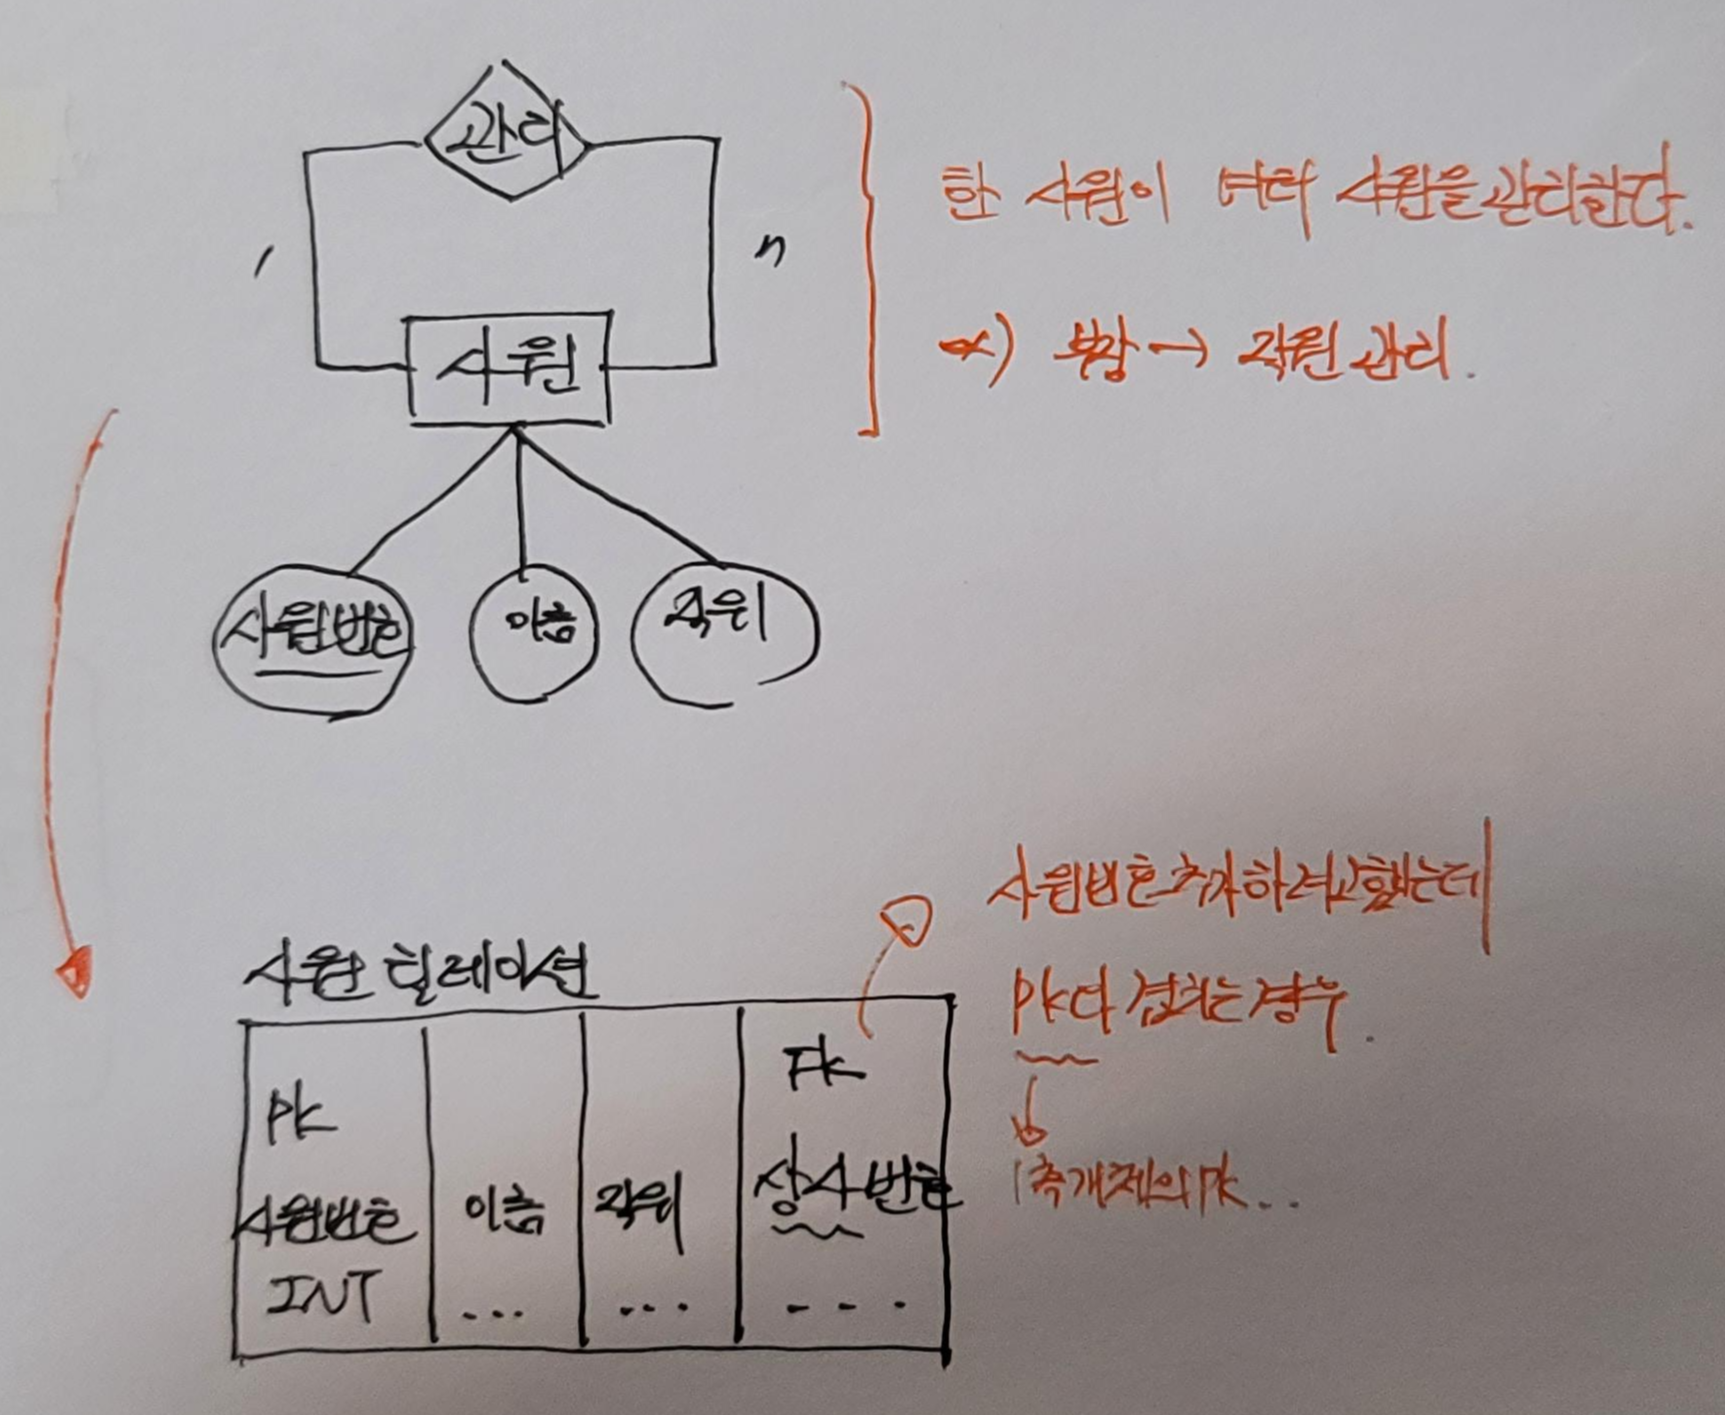 관리
한 사원이 여러 사원을 관리한다.
1
n
사원
ex) 부장 → 직원 관리.
사원번호
이름
직위
사원번호 추가하려고 했는데
사원 릴레이션
PK다 겹치는 경우.
PK
FK
사원번호
이름
직위
상사번호
1측개체의 PK...
INT
...
...
- - -